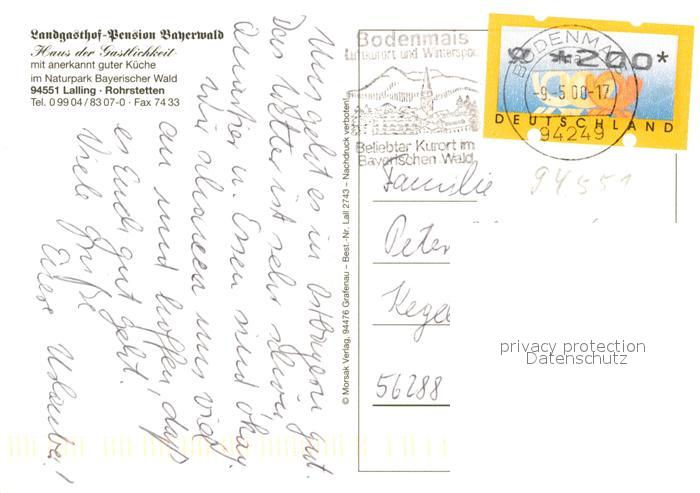 Landgasthof-Pension Bayerwald
Haus der Gastlichkeit
mit anerkannt guter Küche
im Naturpark Bayerischer Wald
94551 Lalling · Rohrstetten
Tel. 0 99 04 / 83 07-0 · Fax 74 33
Uns geht es in Ostbayern gut.
Das Wetter ist sehr schön
Quartier u. Essen sind okay.
Wir schauen uns viel
an und hoffen, dass
es Euch gut geht.
Viele Grüße
Eure Urlauber!
© Morsak Verlag, 94476 Grafenau – Best.-Nr. Lall 2743 – Nachdruck verboten!
Bodenmais
Luftkurort und Wintersport
Beliebter Kurort im
Bayerischen Wald
BODENMAIS
-9.-5.00-17
94249
*200*
DEUTSCHLAND
94551
Familie
Peter
Kegel
56288
privacy protection
Datenschutz